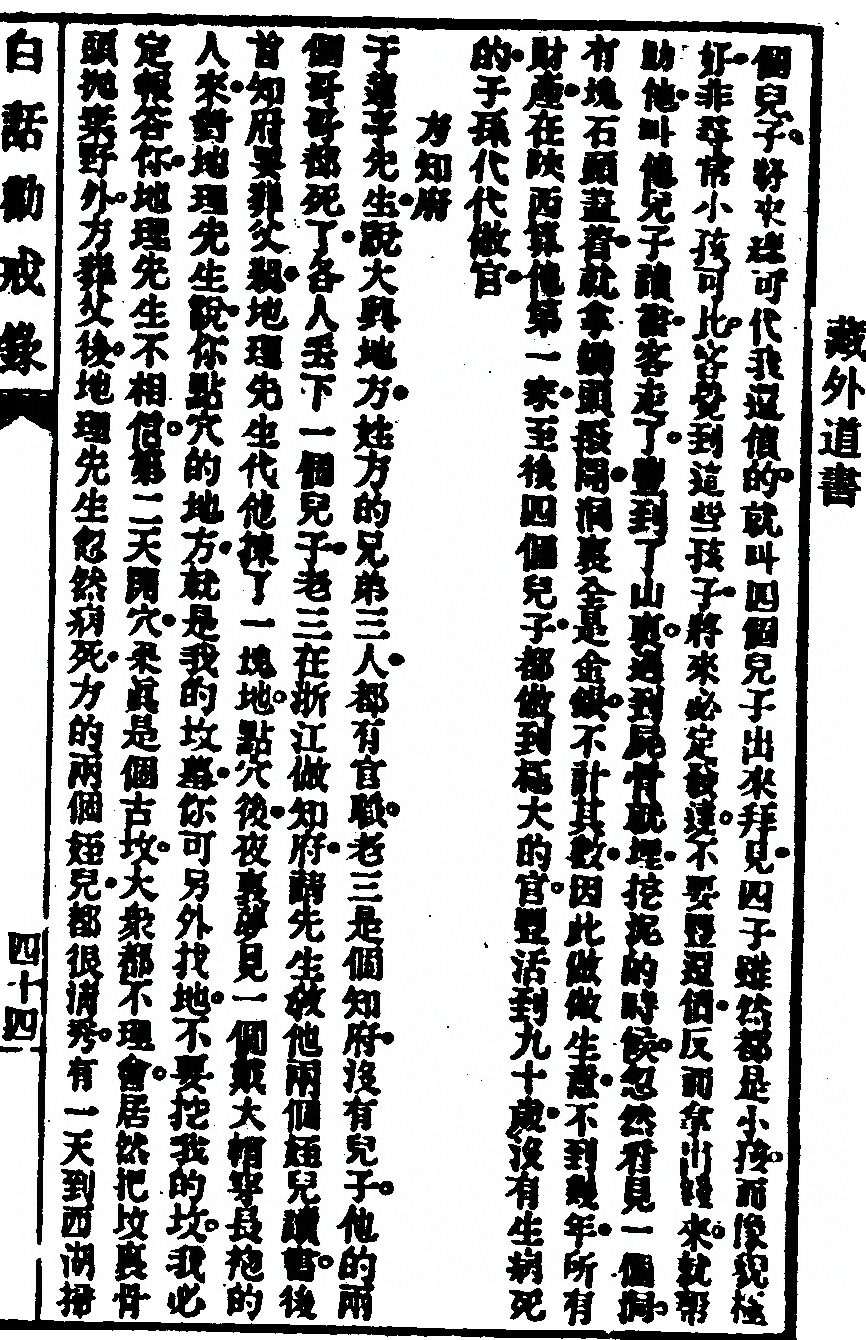 藏外道書
個兒子將來還可代我還債的就叫四個兒子出來拜見四子雖然都是小孩而像貌極
好非尋常小孩可比客覺到這些孩子將來必定發達不要豐還債反而拿出錢來就幫
助他叫他兒子讀書客走了豐到了山裏過到屍骨就埋挖泥的時候忽然看見一個洞
有塊石頭蓋着就拿鋤頭撥開洞裏全是金銀不計其數因此做做生意不到幾年所有
財產在陝西算他第一家至後四個兒子都做到極大的官豐活到九十歲沒有生病死
的子孫代代做官
方知府
于蓮亭先生說大興地方姓方的兄弟三人都有官職老三是個知府沒有兒子他的兩
個哥哥都死了各人丟下一個兒子老三在浙江做知府請先生教他兩個姪兒讀書後
首知府要葬父親地理先生代他揀了一塊地點穴後夜裏夢見一個戴大帽穿長袍的
人來對地理先生說你點穴的地方就是我的坟墓你可另外找地不要挖我的坟我必
定報答你地理先生不相信第二天開穴果眞是個古坟大衆都不理會居然把坟裏骨
頭拋棄野外方葬父後地理先生忽然病死方的兩個姪兒都很清秀有一天到西湖掃
白話勸戒錄
四十四